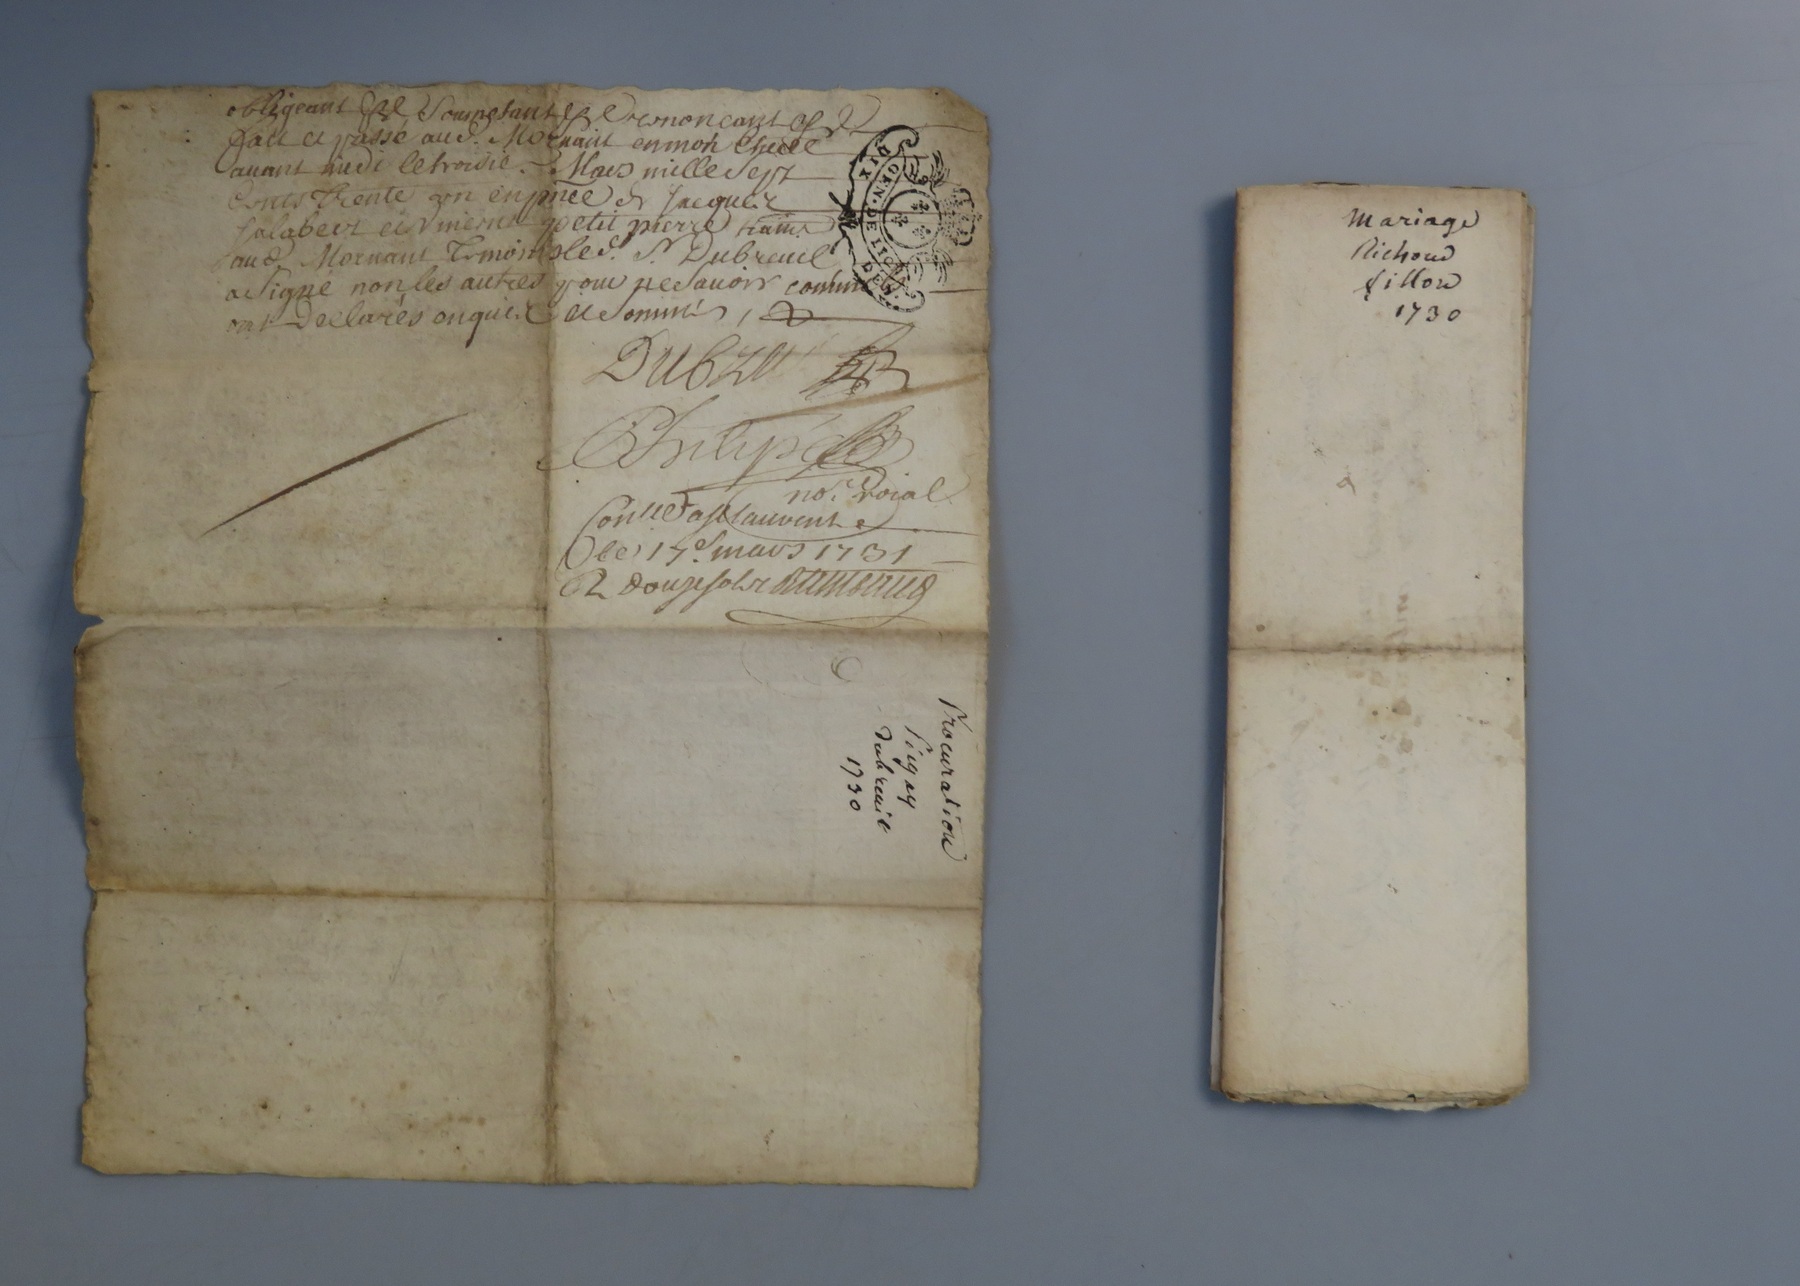 obligeant &c Soumetant &c renoncant &c
fait et passé aud. Mornant en mon Etude
avant midi le troisie. Mars mille Sept
Cents Trente en pnce de Jacques
Salabert et petit pierre
aud. Mornant Temoins led. Sr. Dubreuil
a Signé non les autres pour ne Savoir comme
ont Declarés enquis et Sommés
DIX DEN.
GEN. DE LION
DUBREUIL
Philipe
nore. Roial
Conllé a st Laurent
le 17e. mars 1731
R douze sols
Procuration
dubreuil
1730
Mariage
Richoud
fillon
1730